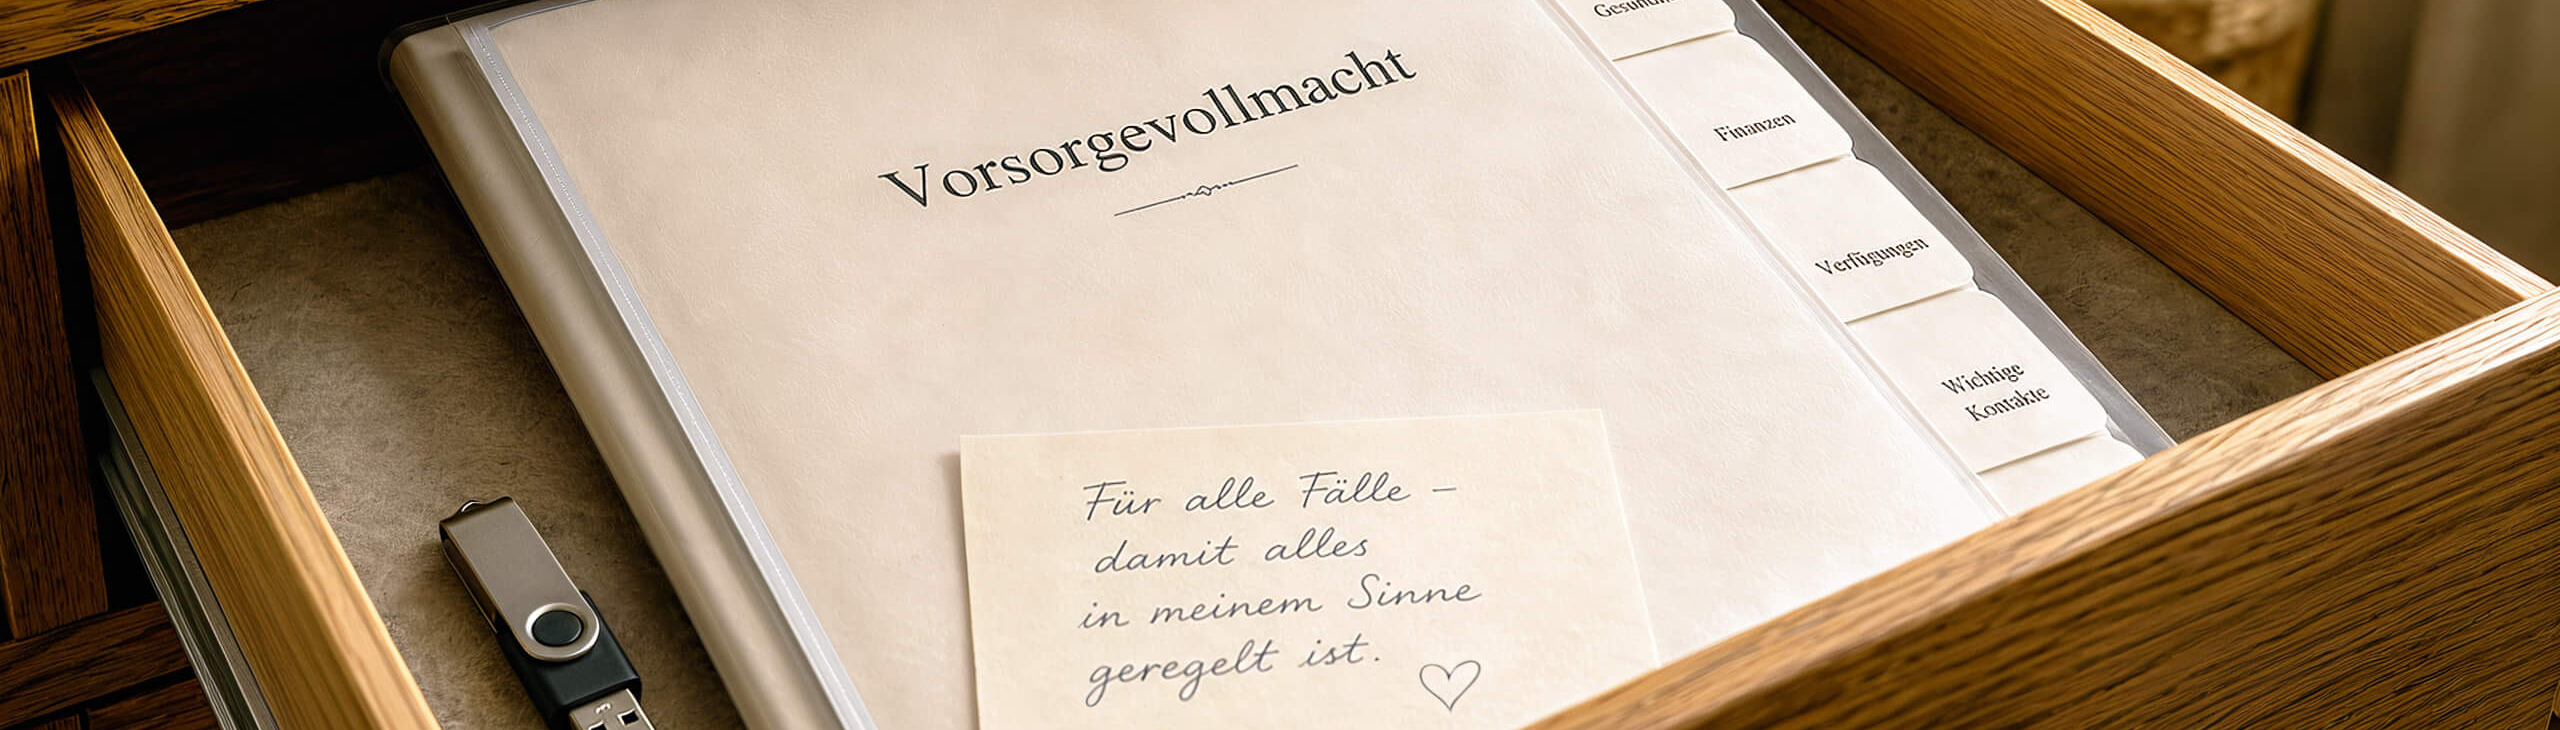 Vorsorgevollmacht
Finanzen
Verfügungen
Wichtige
Kontakte
Für alle Fälle –
damit alles
in meinem Sinne
geregelt ist.